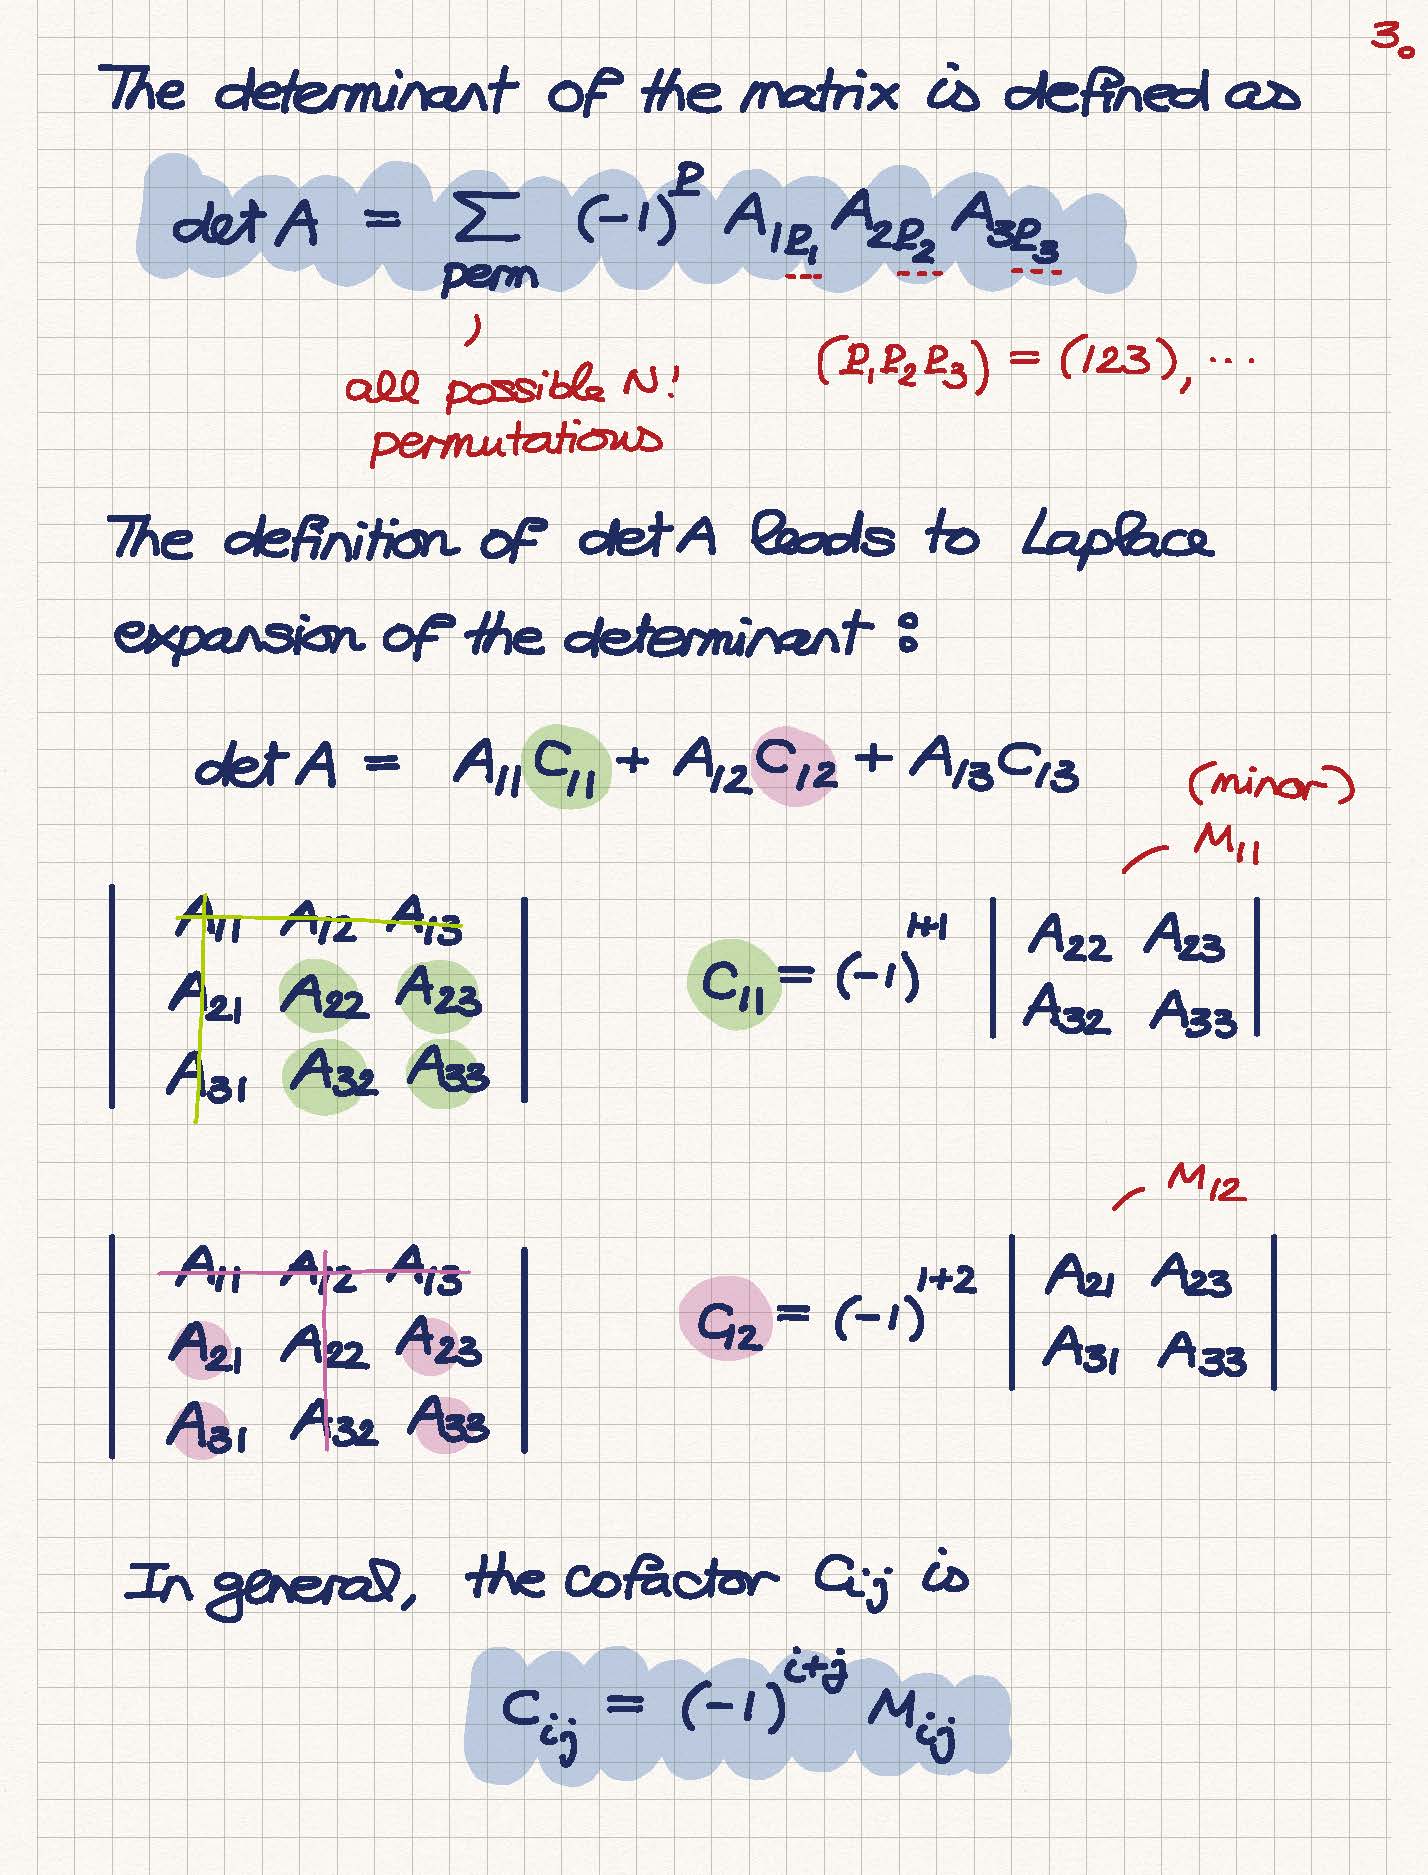 3.
The determinant of the matrix is defined as
det A = Σ (-1)^P A_{1P_1} A_{2P_2} A_{3P_3}
perm
all possible N! (P_1 P_2 P_3) = (123), ...
permutations
The definition of det A leads to Laplace
expansion of the determinant :
det A = A_{11} C_{11} + A_{12} C_{12} + A_{13} C_{13}
(minor)
M_{11}
A_{11} A_{12} A_{13}
A_{21} A_{22} A_{23}
A_{31} A_{32} A_{33}
C_{11} = (-1)^{1+1} | A_{22} A_{23} |
| A_{32} A_{33} |
M_{12}
A_{11} A_{12} A_{13}
A_{21} A_{22} A_{23}
A_{31} A_{32} A_{33}
C_{12} = (-1)^{1+2} | A_{21} A_{23} |
| A_{31} A_{33} |
In general, the cofactor C_{ij} is
C_{ij} = (-1)^{i+j} M_{ij}